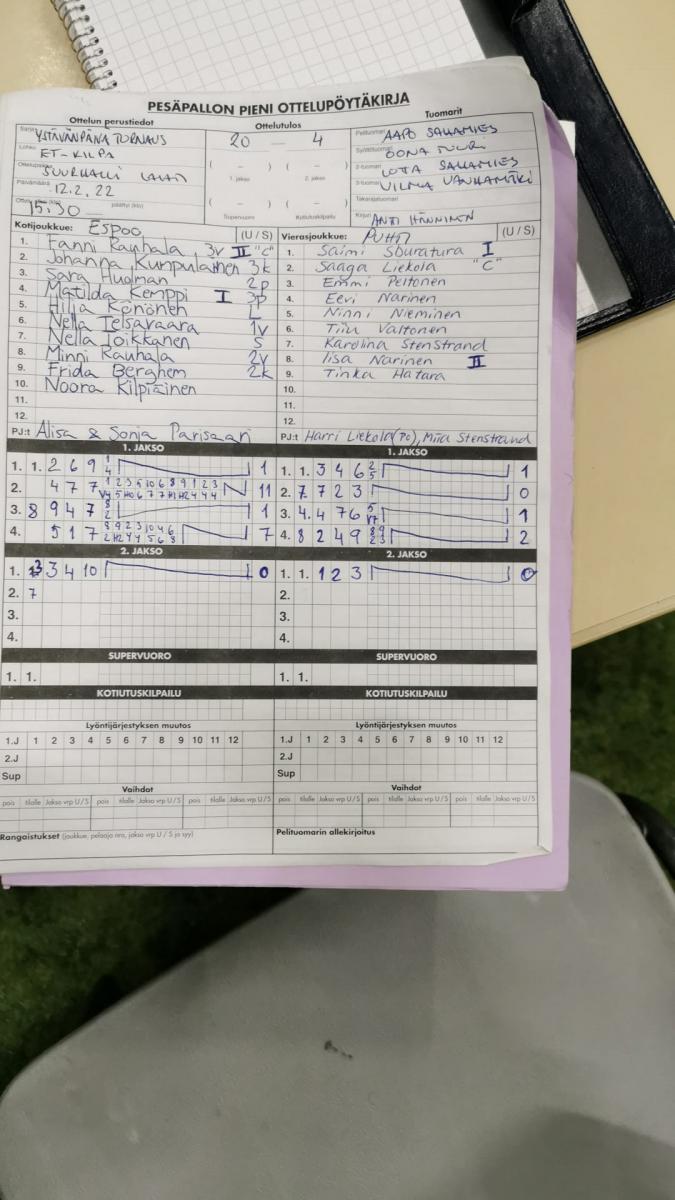 PESÄPALLON PIENI OTTELUPÖYTÄKIRJA
Ottelun perustiedot
YSTÄVÄNPÄIVÄ TURNAUS
ET-KILPA
SUURHALLI LAHTI
Päivämäärä 12.2.22
15:30 päättyi (klo)
Ottelutulos
20 — 4
( – ) ( – )
1. jakso 2. jakso
( – ) ( – )
Supervuoro Kotiutuskilpailu
Tuomarit
Pelituomari AAPO SALLAMIES
Syöttötuomari OONA TUURI
2-tuomari LOTTA SALLAMIES
3-tuomari VILMA VANHAMÄKI
Takarajatuomari
Kirjuri ANTI HÄNNINEN
Kotijoukkue: Espoo (U / S)
1. Fanni Rauhala 3v II "C"
2. Johanna Kumpulainen 3k
3. Sara Huolman 2p
4. Matilda Kemppi I 3p
5. Hilja Könönen L
6. Nella Telsavaara 1v
7. Nella Toikkanen S
8. Minni Rauhala 2v
9. Frida Berghem 2k
10. Noora Kilpiäinen
11.
12.
PJ:t Alisa & Sonja Parisaari
Vierasjoukkue: PUHTI (U / S)
1. Saimi Sburatura I
2. Saaga Liekola "C"
3. Emmi Peltonen
4. Eevi Narinen
5. Ninni Nieminen
6. Tiiu Valtonen
7. Karolina Stenstrand
8. Iisa Narinen II
9. Tinka Hatara
10.
11.
12.
PJ:t Harri Liekola (PJ), Miia Stenstrand
1. JAKSO
1. 1. 2 6 9 1/4 1
2. 4 7 7 11
3. 8 9 4 7 8/2 1
4. 5 1 7 7
1. JAKSO
1. 1. 3 4 6 2/5 1
2. 7 7 2 3 0
3. 4. 4 7 6 1
4. 8 2 4 9 2
2. JAKSO
1. 3 3 4 10 0
2. 7
3.
4.
2. JAKSO
1. 1. 1 2 3 0
2.
3.
4.
SUPERVUORO
1. 1.
SUPERVUORO
1. 1.
KOTIUTUSKILPAILU
KOTIUTUSKILPAILU
Lyöntijärjestyksen muutos
1.J 1 2 3 4 5 6 7 8 9 10 11 12
2.J
Sup
Lyöntijärjestyksen muutos
1.J 1 2 3 4 5 6 7 8 9 10 11 12
2.J
Sup
Vaihdot
pois tilalle Jakso vrp U/S pois tilalle Jakso vrp U/S pois tilalle Jakso vrp U/S
Vaihdot
pois tilalle Jakso vrp U/S pois tilalle Jakso vrp U/S pois tilalle Jakso vrp U/S
Rangaistukset (joukkue, pelaaja nro, jakso vrp U / S ja syy)
Pelituomarin allekirjoitus